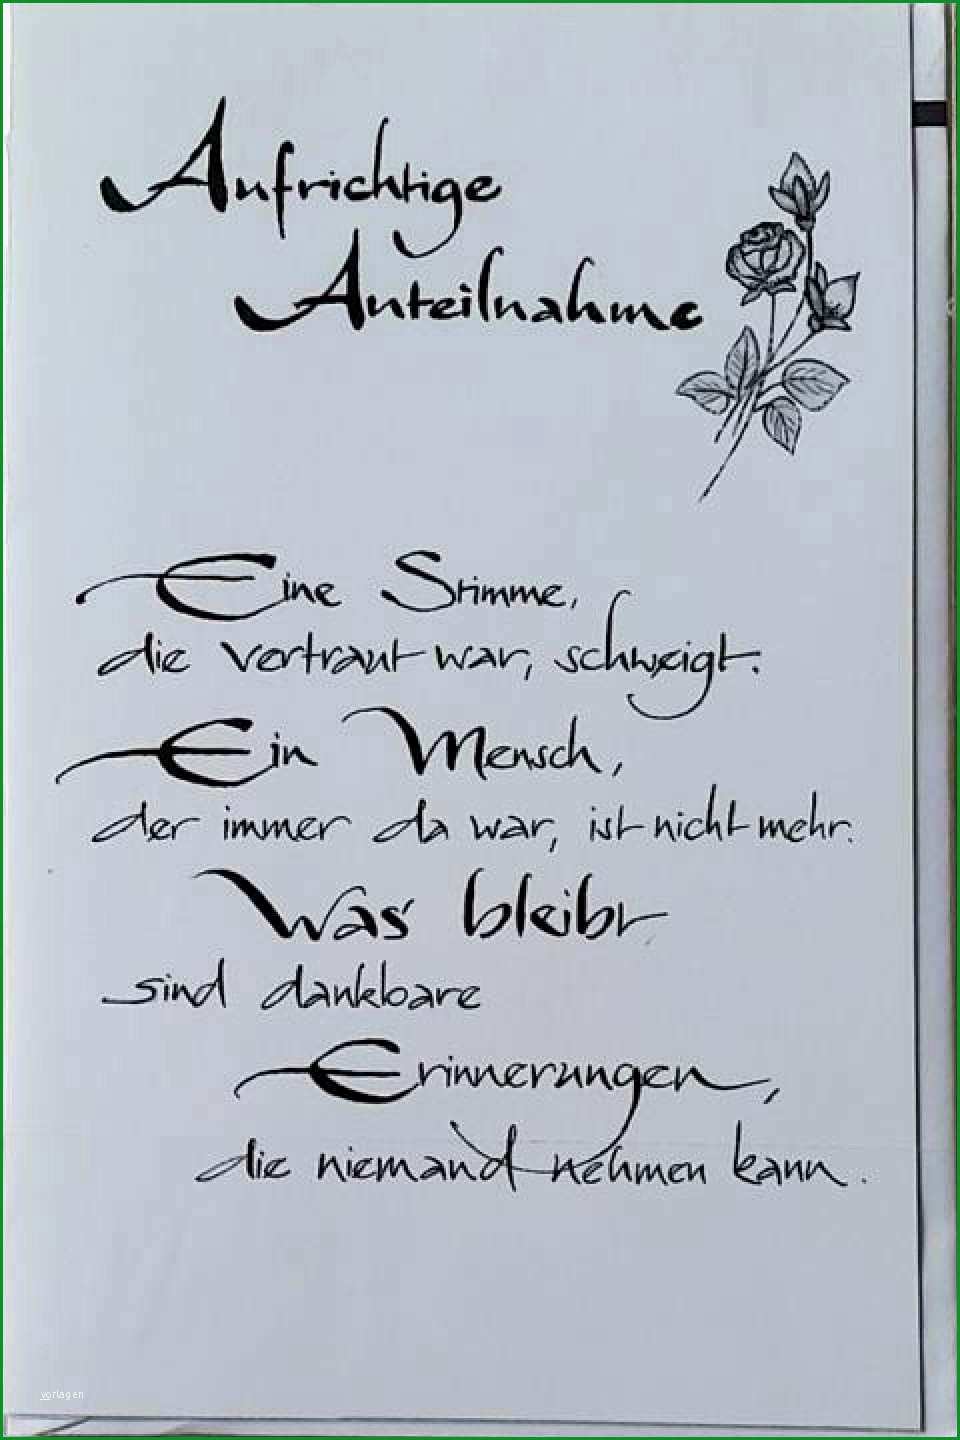 Aufrichtige
Anteilnahme
Eine Stimme,
die vertraut war, schweigt.
Ein Mensch,
der immer da war, ist nicht mehr.
Was bleibt
sind dankbare
Erinnerungen,
die niemand nehmen kann.
vorlagen